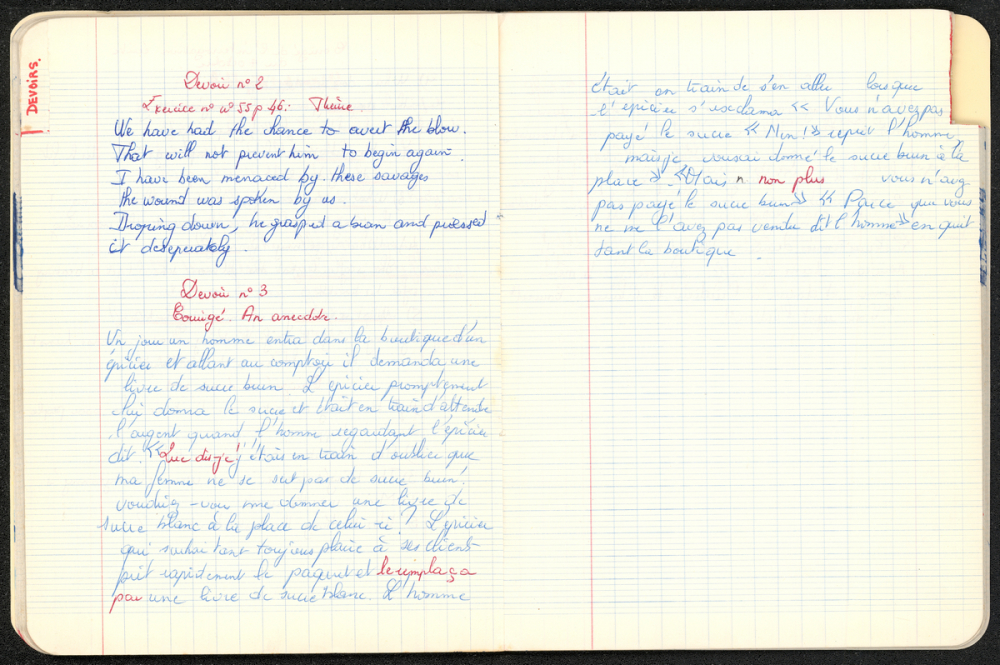 DEVOIRS.
Devoir n° 2
Exercice n° n° 55 p 46. Thème.
We have had the chance to avert the blow.
That will not prevent him to begin again.
I have been menaced by these savages
the wound was spoken by us.
Droping down, he grasped a bran and pressed
it desperately.
Devoir n° 3
Corrigé. An anecdote.
Un jour un homme entra dans la boutique d'un
épicier et allant au comptoir il demanda une
livre de sucre brun L'épicier promptement
lui donna le sucre et était en train d'attendre
l'argent quand l'homme regardant l'épicier
dit. << Que dis-je j'étais en train d'oublier que
ma femme ne se sert pas de sucre brun.
voudriez-vous me donner une livre de
sucre blanc à la place de celui-ci ? L'épicier
qui souhaitant toujours plaire à ses clients
prit rapidement le paquet et le remplaça
par une livre de sucre blanc. L'homme
était en train de s'en aller lorsque
l'épicier s'exclama << Vous n'avez pas
payé le sucre << Non ! >> reprit l'homme,
mais je vous ai donné le sucre brun à la
place >>. << Mais n non plus vous n'avez
pas payé le sucre brun >> << Parce que vous
ne me l'avez pas vendu dit l'homme >> en quit
tant la boutique.